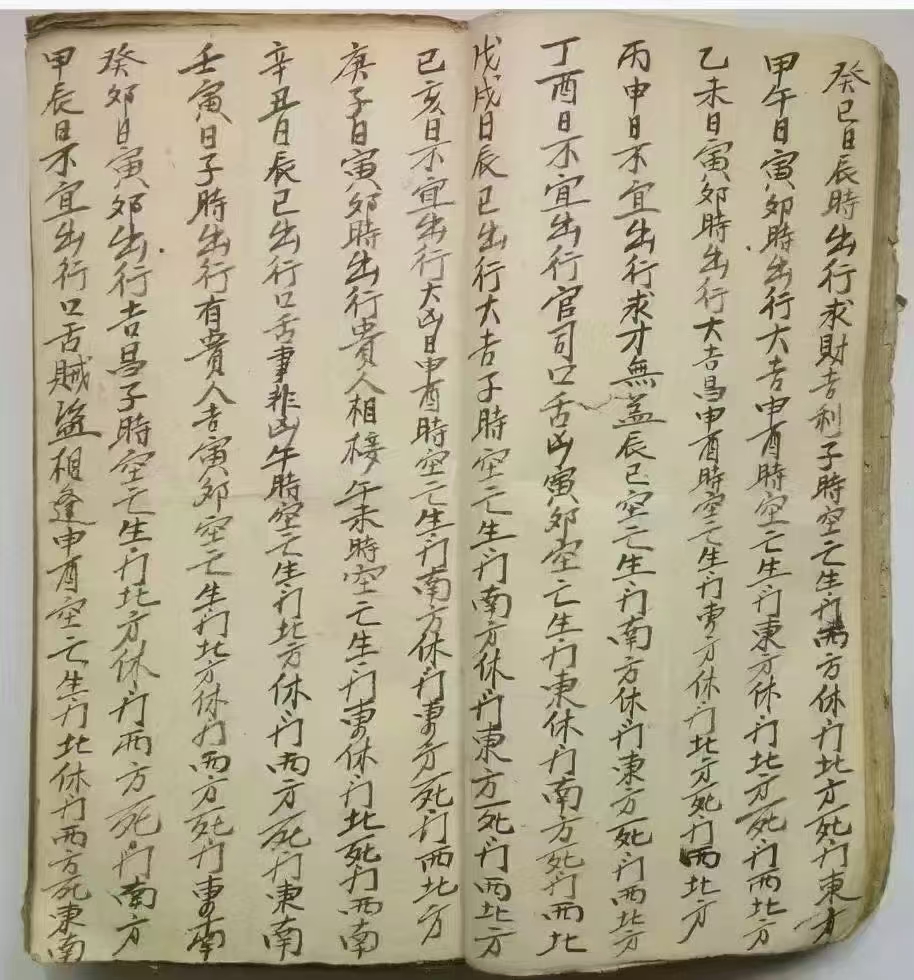 癸巳日辰時出行求財吉利子時空亡生门西方休门北方死门東方
甲午日寅卯時出行大吉申酉時空亡生门東方休门北方死门西北方
乙未日寅卯時出行大吉昌申酉時空亡生门東方休门北方死门西北方
丙申日不宜出行求才無益辰巳空亡生门南方休门東方死门西北方
丁酉日不宜出行官司口舌凶寅卯空亡生门東休门南方死门西北
戊戌日辰巳出行大吉子時空亡生门南方休门東方死门西北方
己亥日不宜出行大凶日申酉時空亡生门南方休门東方死门西北方
庚子日寅卯時出行貴人相接午未時空亡生门東休门北死门西南
辛丑日辰巳出行口舌事非凶午時空亡生门北方休门西方死门東南
壬寅日子時出行有貴人吉寅卯空亡生门北方休门西方死门東南
癸卯日寅卯出行吉昌子時空亡生门北方休门西方死门南方
甲辰日不宜出行口舌賊盜相逢申酉空亡生门北休门西方死東南